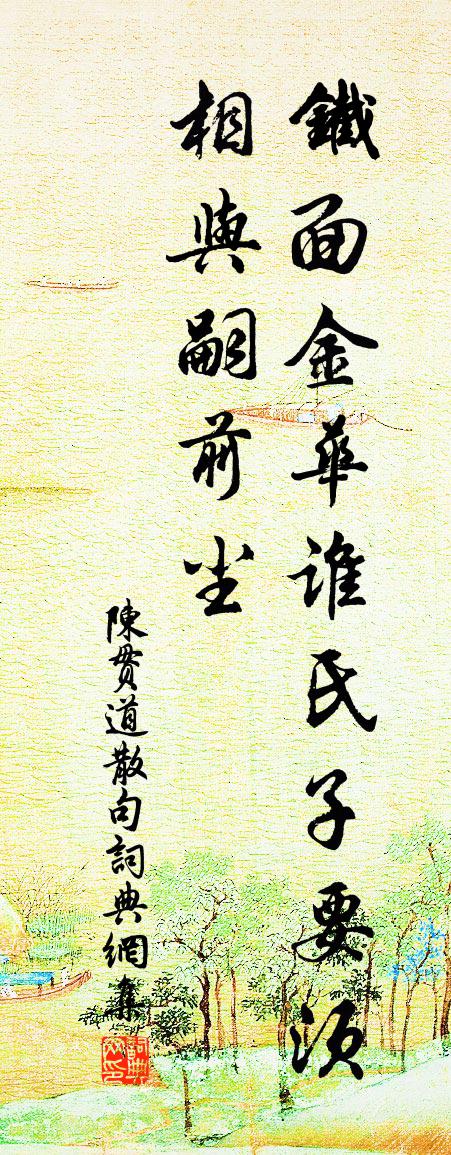 鐵面金華誰氏子要須
相與嗣前尘
陳貫道散句詞典網集